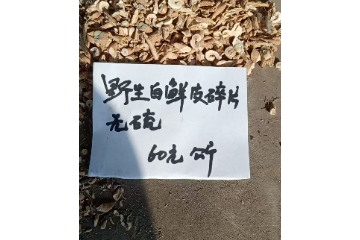 野生白鲜皮碎片
无硫
60元 公斤